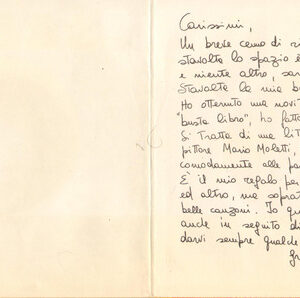 Carissimi,
Un breve cenno di ri
stavolta lo spazio è
e niente altro, sar
Stavolta la mia bu
Ho ottenuto una novi
"busta libro", ho fatto
Si Tratta di una lit
pittore Mario Moletti,
comodamente alle pa
È il mio regalo per
ed altro, ma soprat
belle canzoni. Io qu
anche in seguito di
darvi sempre qualc
gr